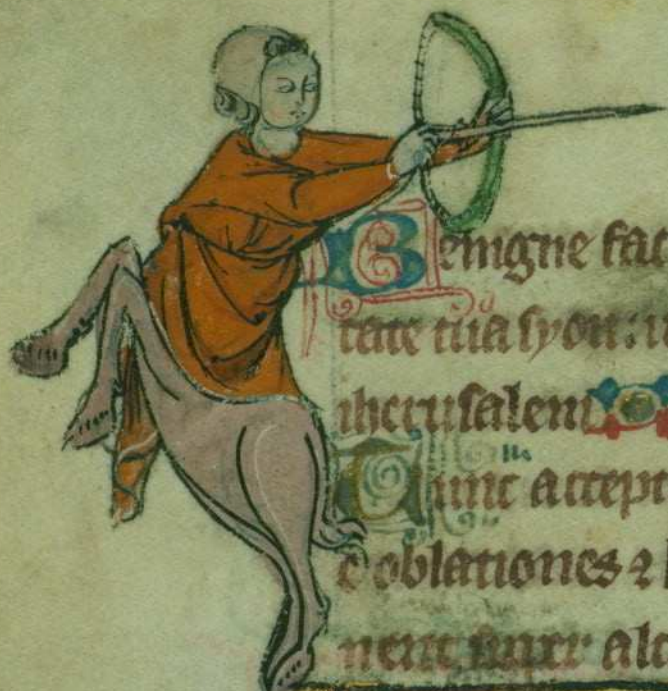 Benigne fac
tate tua syon: u
iherusalem
Tunc accept
oblationes ⁊
nent super alt